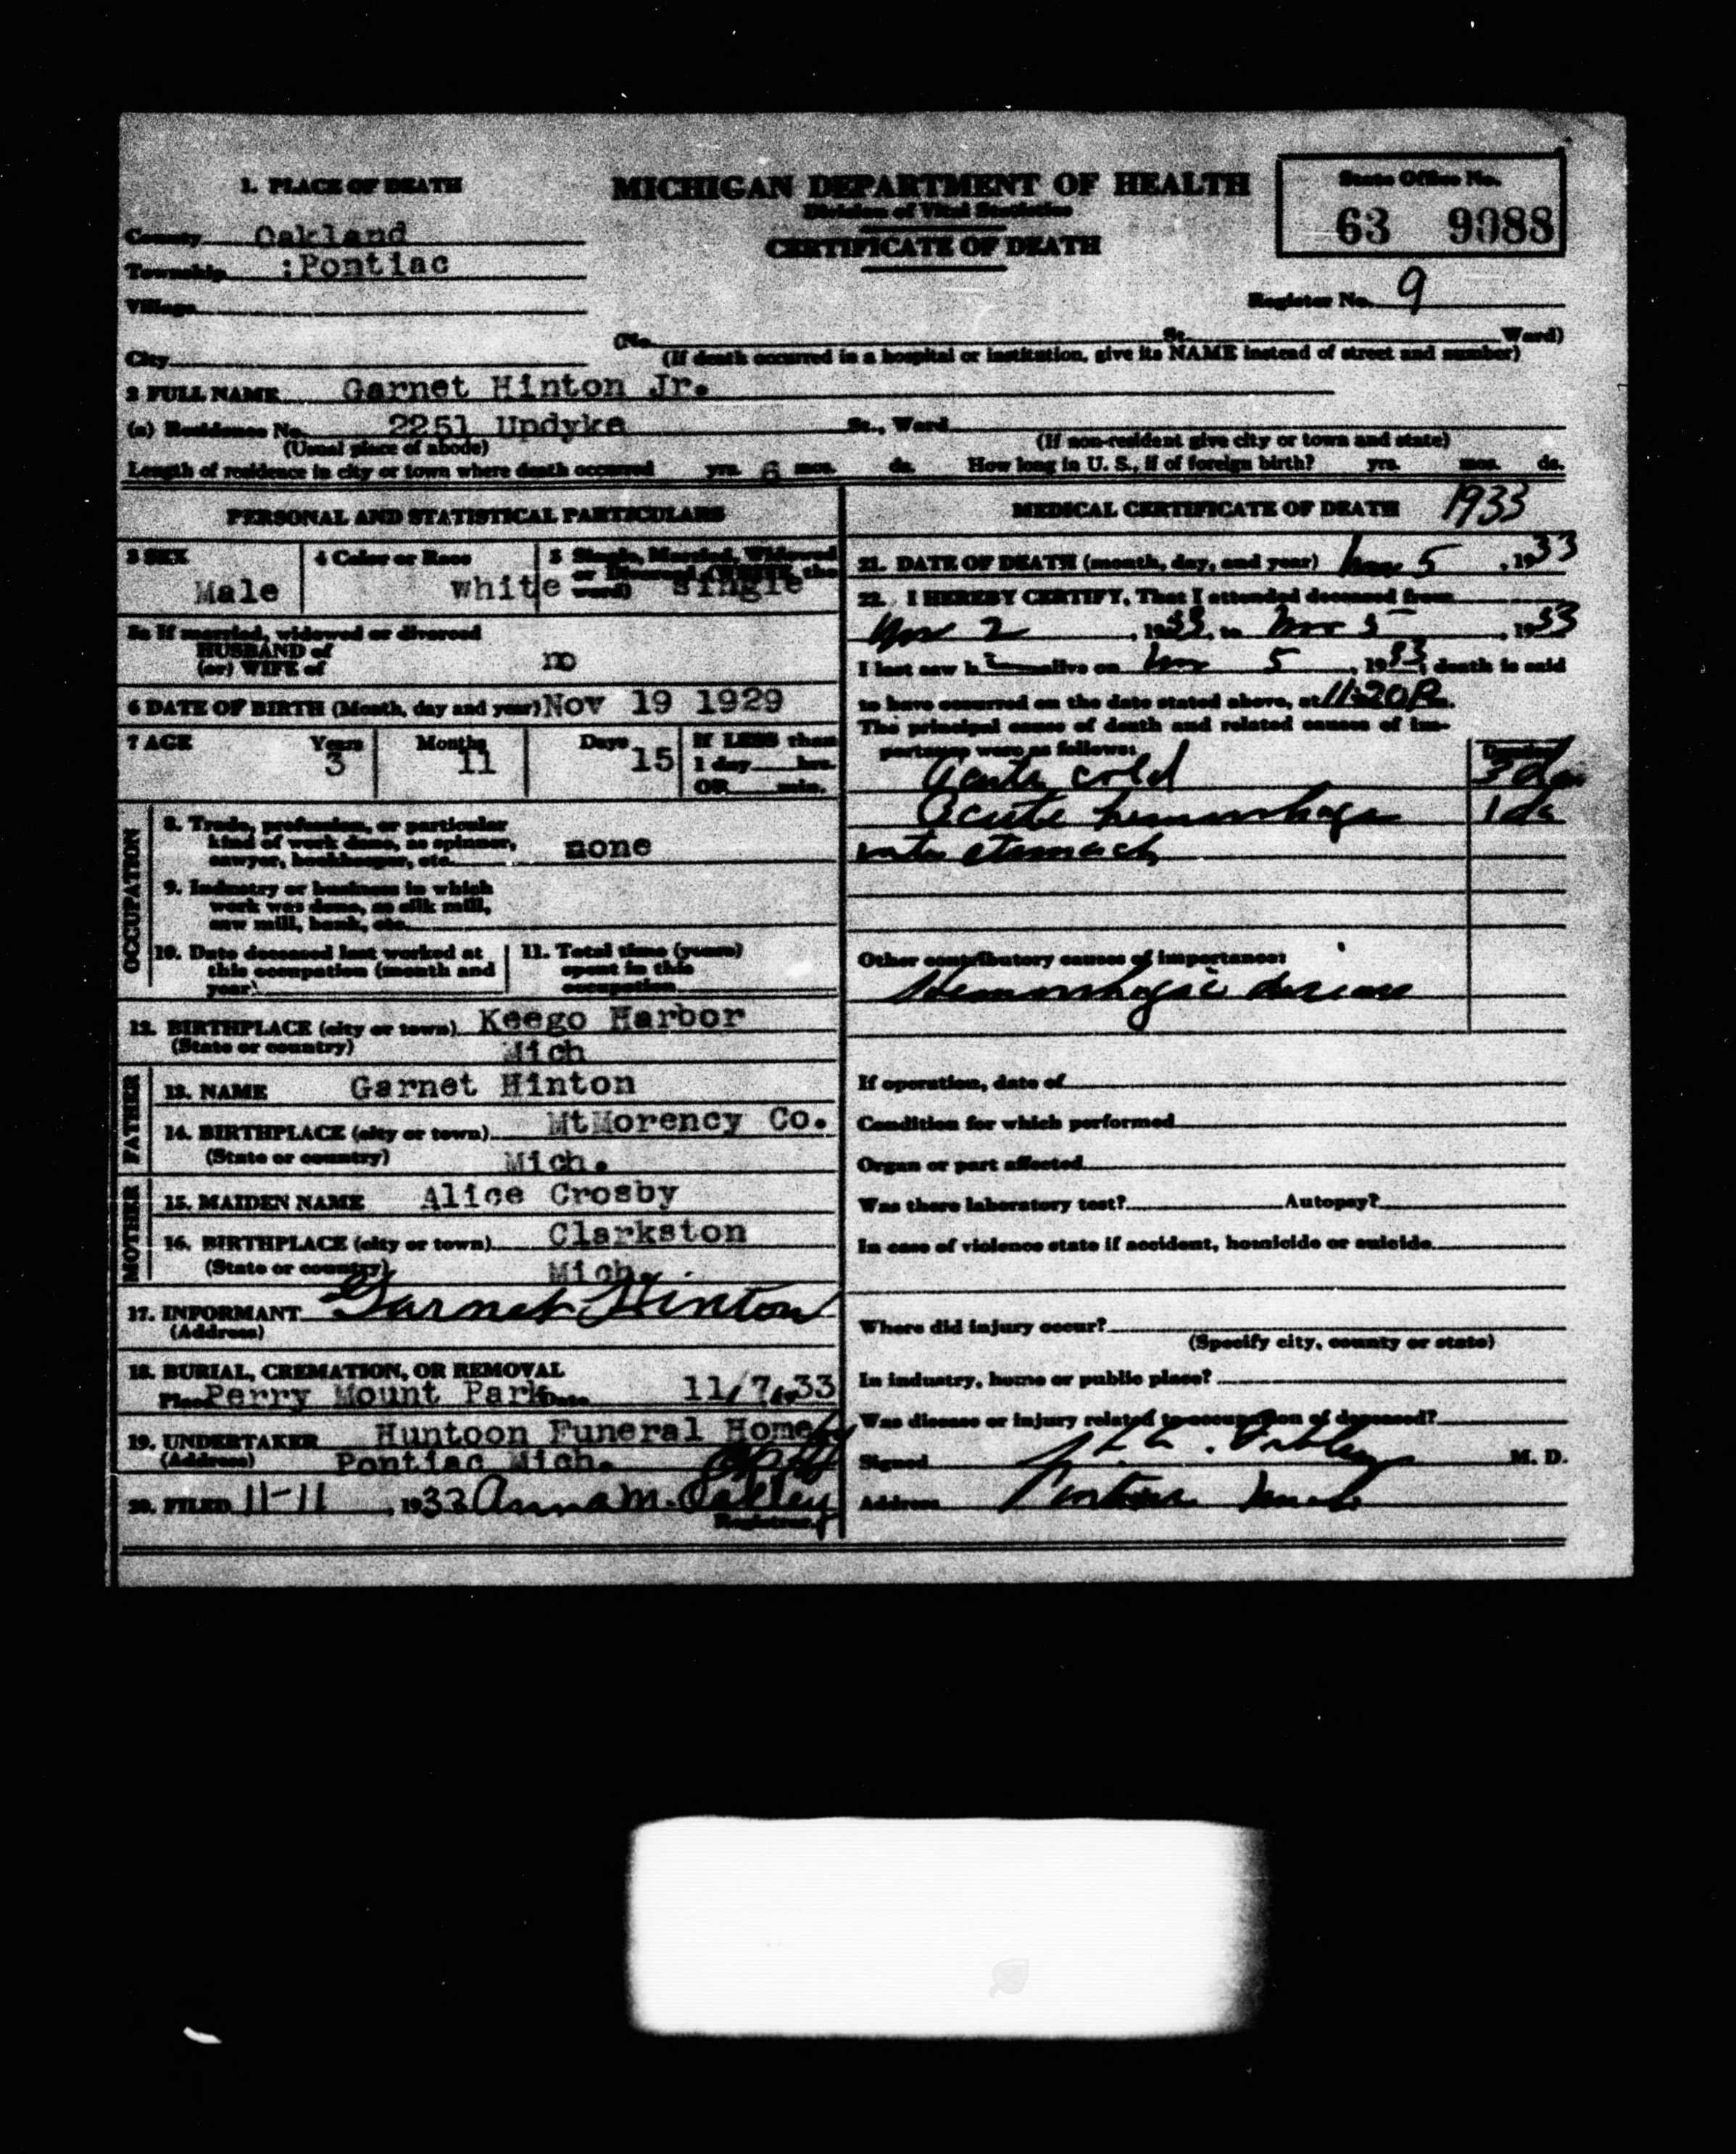 1. PLACE OF DEATH
MICHIGAN DEPARTMENT OF HEALTH
Division of Vital Statistics
CERTIFICATE OF DEATH
State Office No.
63 9988
County Oakland
Township :Pontiac
Register No. 9
Village
(No. St. Ward)
City
(If death occurred in a hospital or institution, give its NAME instead of street and number)
2 FULL NAME Garnet Hinton Jr.
(a) Residence No. 2251 Updyke St., Ward
(Usual place of abode) (If non-resident give city or town and state)
Length of residence in city or town where death occurred yrs. 6 mos. ds. How long in U. S., if of foreign birth? yrs. mos. ds.
PERSONAL AND STATISTICAL PARTICULARS
3 SEX Male
4 Color or Race white
5 Single, Married, Widowed or Divorced (WRITE the word) single
5a If married, widowed or divorced
HUSBAND of
(or) WIFE of no
6 DATE OF BIRTH (Month, day and year) Nov 19 1929
7 AGE Years 3 Months 11 Days 15 If LESS than
1 day hrs.
OR min.
OCCUPATION
8. Trade, profession, or particular
kind of work done, as spinner,
sawyer, bookkeeper, etc. none
9. Industry or business in which
work was done, as silk mill,
saw mill, bank, etc.
10. Date deceased last worked at
this occupation (month and
year)
11. Total time (years)
spent in this
occupation
12. BIRTHPLACE (city or town) Keego Harbor
(State or country) Mich
FATHER
13. NAME Garnet Hinton
14. BIRTHPLACE (city or town) MtMorency Co.
(State or country) Mich.
MOTHER
15. MAIDEN NAME Alice Crosby
16. BIRTHPLACE (city or town) Clarkston
(State or country) Mich.
17. INFORMANT Garnet Hinton
(Address)
18. BURIAL, CREMATION, OR REMOVAL
Place Perry Mount Park Date 11/7, 1933
19. UNDERTAKER Huntoon Funeral Home
(Address) Pontiac Mich.
20. FILED 11-11, 1933 Anna M.
Registrar
MEDICAL CERTIFICATE OF DEATH 1933
21. DATE OF DEATH (month, day, and year) Nov 5, 1933
22. I HEREBY CERTIFY, That I attended deceased from
Nov 2, 1933, to Nov 5, 1933
I last saw h i alive on Nov 5, 1933, death is said
to have occurred on the date stated above, at 11:20 P m.
The principal cause of death and related causes of im-
portance were as follows: Duration
Acute cold 3 da
Acute hemorrhage 1 da
into stomach
Other contributory causes of importance:
Hemorrhagic disease
If operation, date of
Condition for which performed
Organ or part affected
Was there laboratory test? Autopsy?
In case of violence state if accident, homicide or suicide
Where did injury occur?
(Specify city, county or state)
In industry, home or public place?
Was disease or injury related to occupation of deceased?
Signed M. D.
Address Pontiac Mich